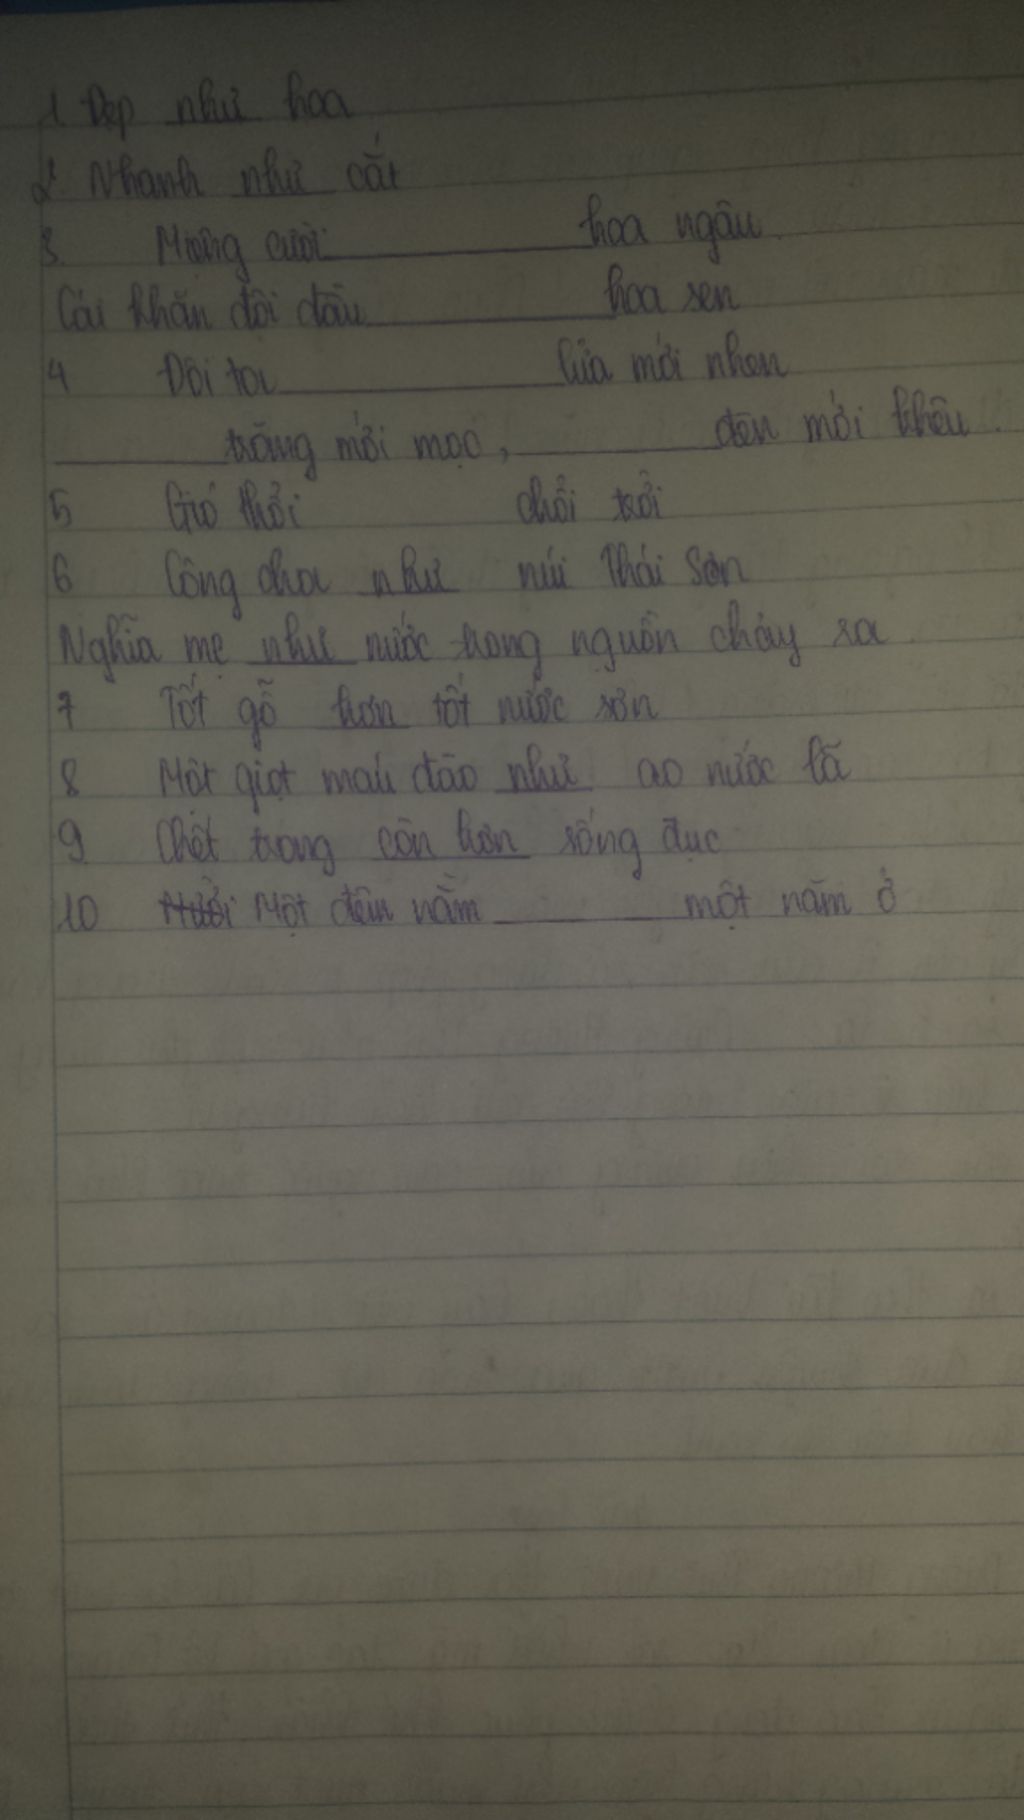 1. Đẹp như hoa
2. Nhanh như cắt
3. Miệng cười ________ hoa ngâu.
Cái khăn đội đầu ________ hoa sen
4 Đôi ta ________ lửa mới nhen
________ trăng mới mọc, ________ đèn mới khêu.
5 Gió thổi chổi trời
6 Công cha như núi Thái Sơn
Nghĩa mẹ như nước trong nguồn chảy ra.
7 Tốt gỗ hơn tốt nước sơn
8 Một giọt máu đào như ao nước lã
9 Chết trong còn hơn sống đục
10 Một đêm nằm ________ một năm ở